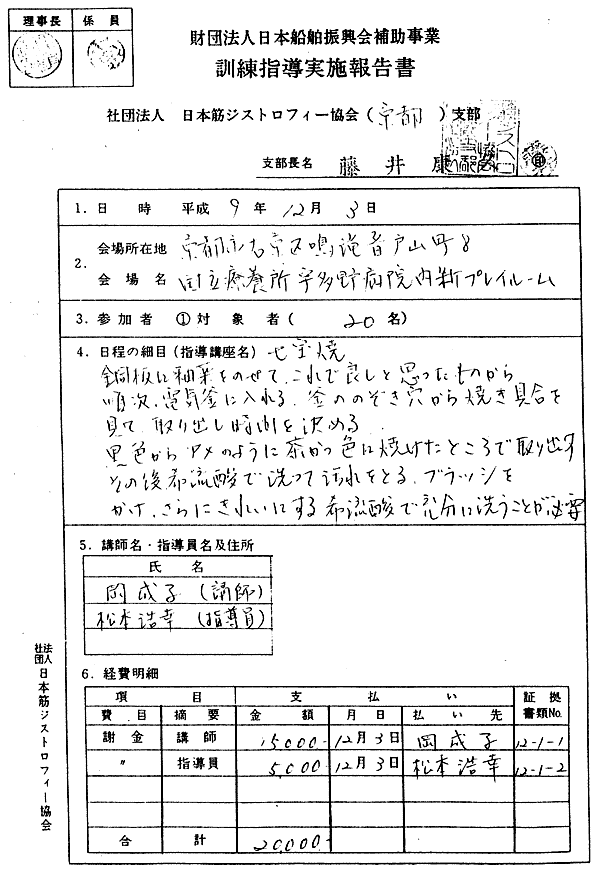 理事長 係員
財団法人日本船舶振興会補助事業
訓練指導実施報告書
社団法人 日本筋ジストロフィー協会（京都 ）支部
支部長名 藤井康
1．日 時 平成 9 年 12 月 3 日
2．会場所在地 京都市右京区鳴滝音戸山町8
会 場 名 国立療養所宇多野病院内新プレイルーム
3．参加者 ①対 象 者（ 20 名）
4．日程の細目（指導講座名） 七宝焼
銅板に釉薬をのせて、これで良しと思ったものから
順次、電気釜に入れる。釜ののぞき穴から焼き具合を
見て、取り出し時間を決める。
黒色からアメのように茶かっ色に焼けたところで取り出す
その後希流酸で洗って汚れをとる。ブラッシを
かけ、さらにきれいにする 希流酸で充分に洗うことが必要
5．講師名・指導員名及住所
氏 名
岡成子（講師）
松本浩幸（指導員）
6．経費明細
項 目 支 払 い 証拠書類No.
費 目 摘 要 金 額 月 日 払 い 先
謝 金 講 師 15,000- 12月3日 岡成子 12-1-1
〃 指導員 5,000 12月3日 松本浩幸 12-1-2
合 計 20,000
社団法人 日本筋ジストロフィー協会